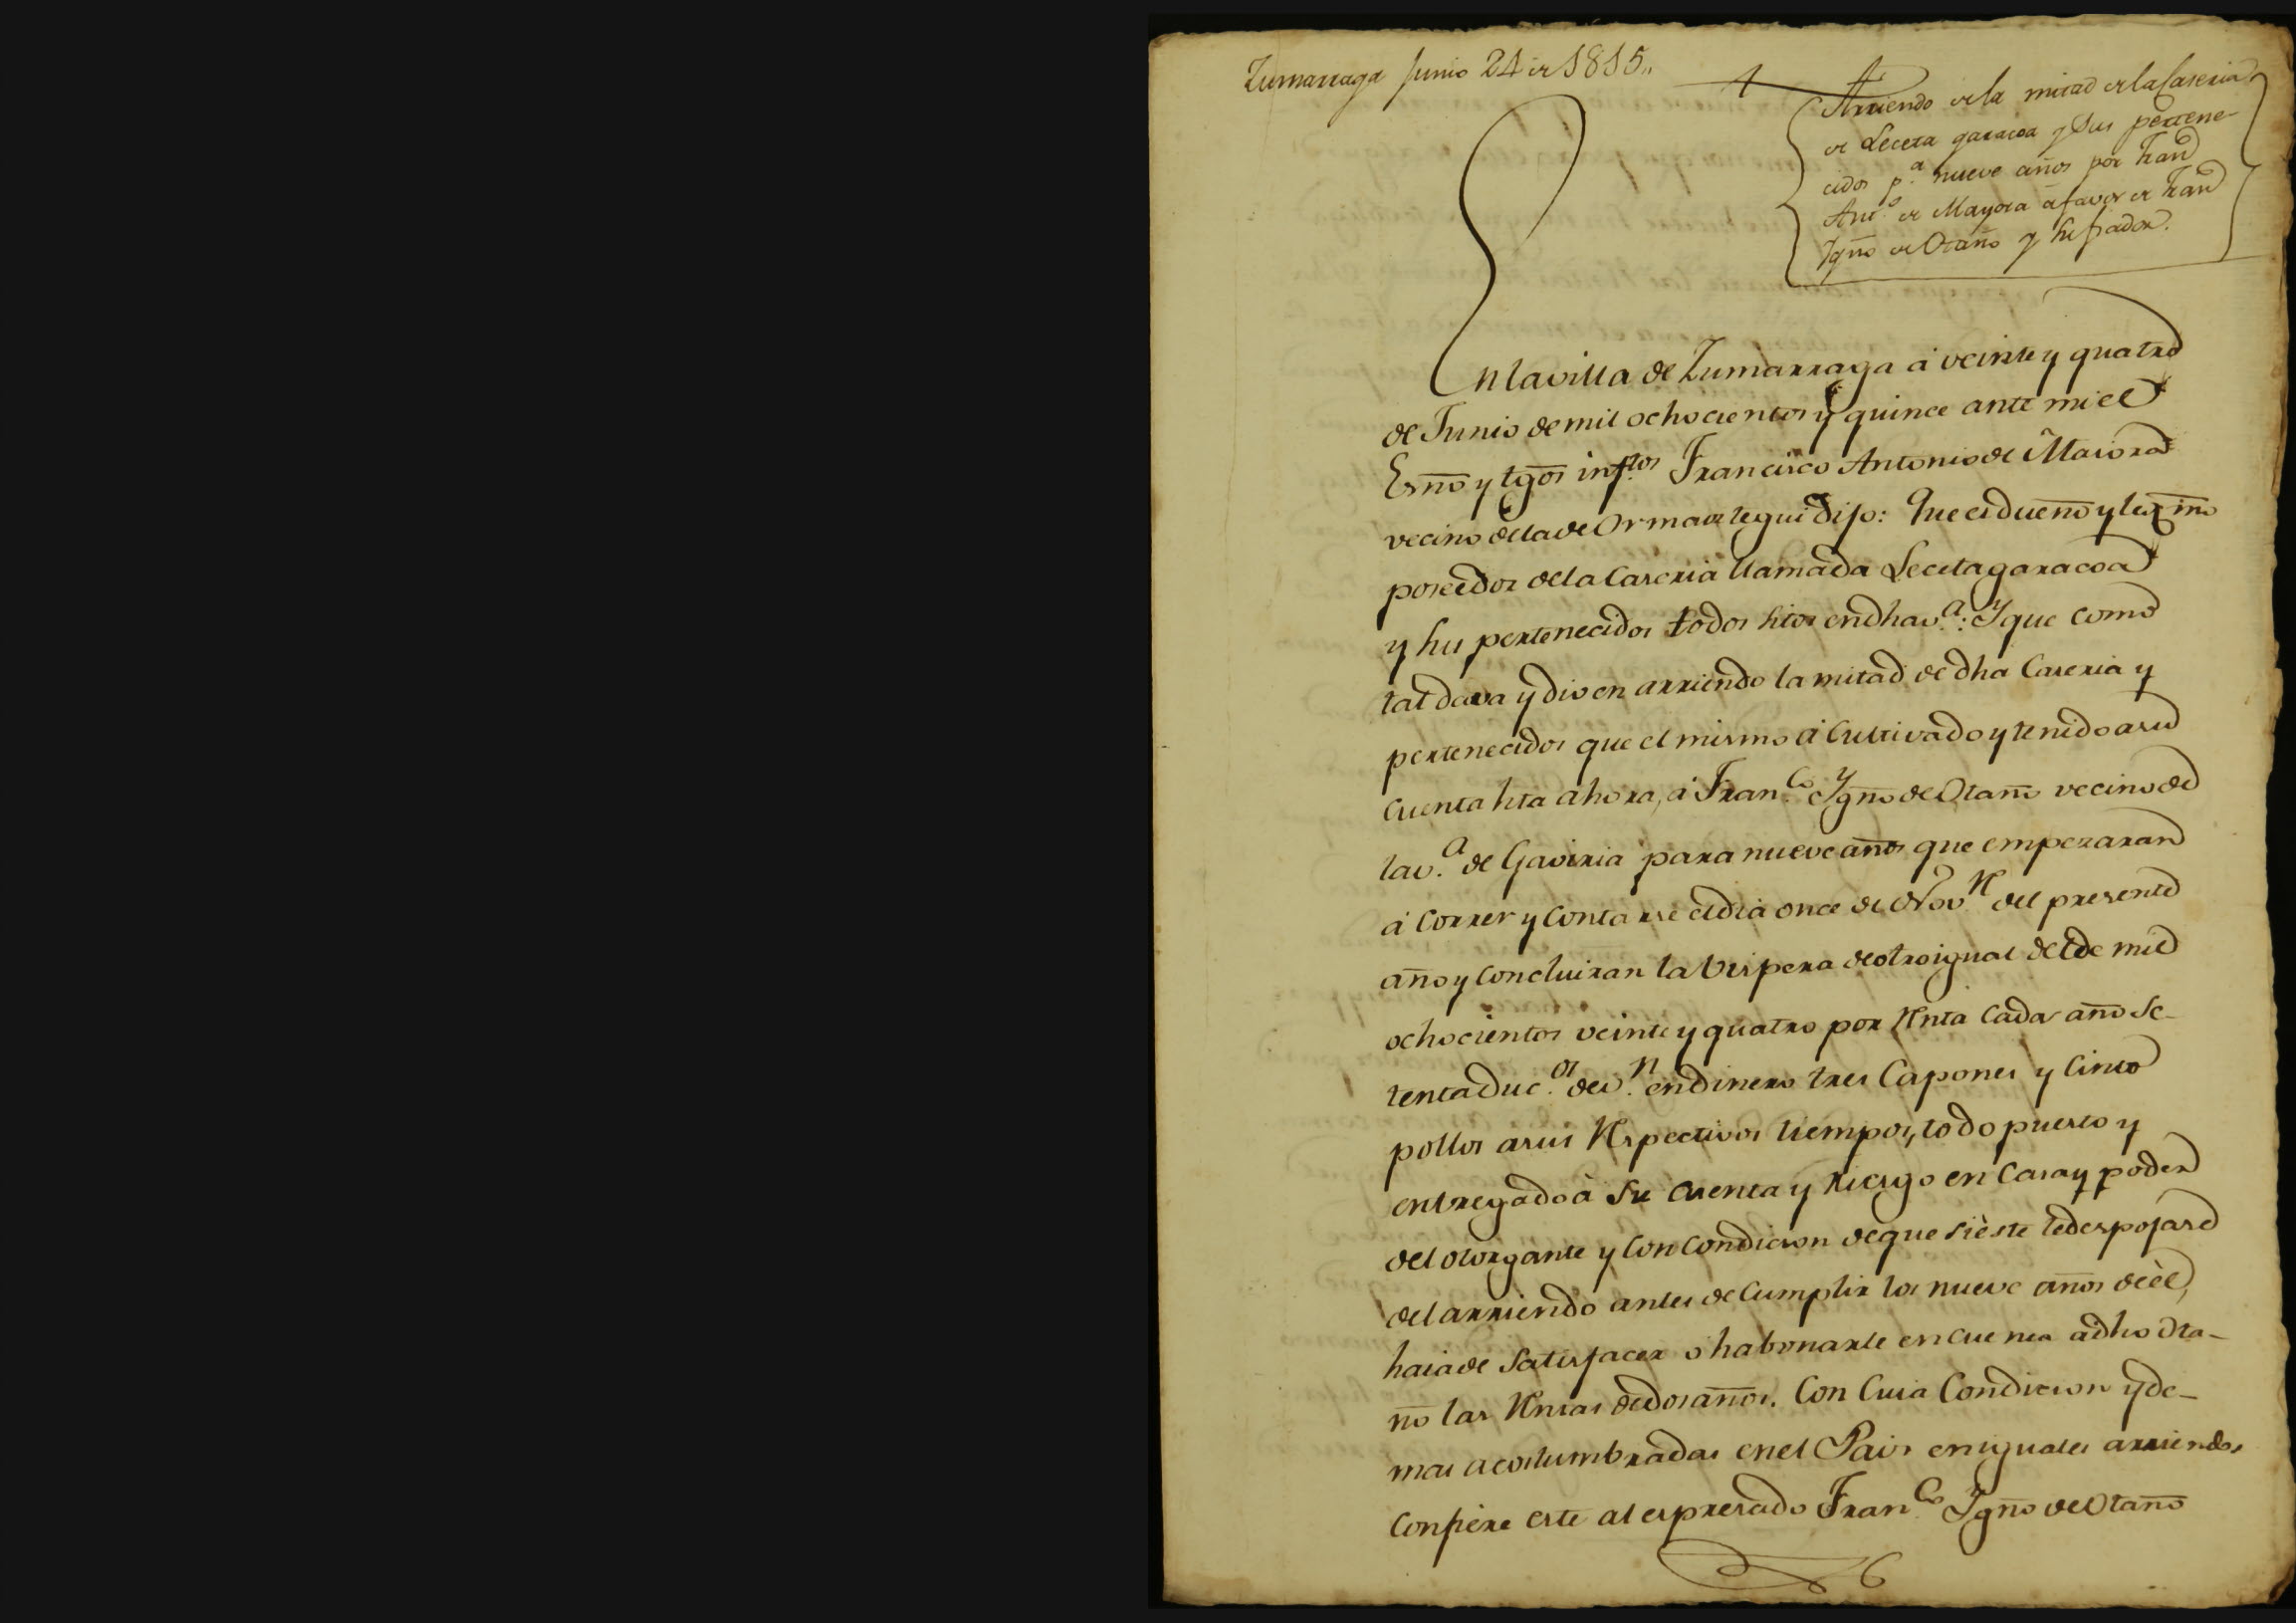 Zumarraga Junio 24 de 1815,,
Arriendo de la mitad de la Caseria
de Leceta garacoa y Sus pertene-
cidos p.a nueve años por Fran.co
Ant.o de Mayora a favor de Fran.co
Ygño de Otaño y su fiador.
En la villa de Zumarraga á veinte y quatro
de Junio de mil ochocientos y quince ante mi el
Esño y tgos inf.tos Francisco Antonio de Maiora
vecino de la de Ormaiztegui dijo: Que es dueño y lexmo
poseedor de la Caseria llamada Lecetagaracoa
y sus pertenecidos todos sitos en dha v.a: Y que como
tal dava y dio en arriendo la mitad de dha Caseria y
pertenecidos que el mismo á Cultivado y tenido a su
Cuenta hta ahora, á Fran.co Ygño de Otaño vecino de
la v.a de Gaviria para nueve años que empezaran
á Correr y Contarse el dia once de Nov.re del presente
año y Concluiran la Vispera de otro igual del de mil
ochocientos veinte y quatro por Renta Cada año Se-
tenta duc.os de v.n en dinero tres Capones y Cinco
pollos á sus Respectivos tiempos, todo puesto y
entregado á Su Cuenta y Riesgo en Casa y poder
del otorgante y Con Condicion de que si este le despojase
del arriendo antes de Cumplir los nueve años de èl,
haia de Satisfacer o habonarle en cuenta a dho Ota-
ño las Rentas de dos años. Con Cuia Condicion y de-
mas acostumbradas en el Pais en iguales arriendos
Confiere este al espresado Fran.co Ygño de Otaño